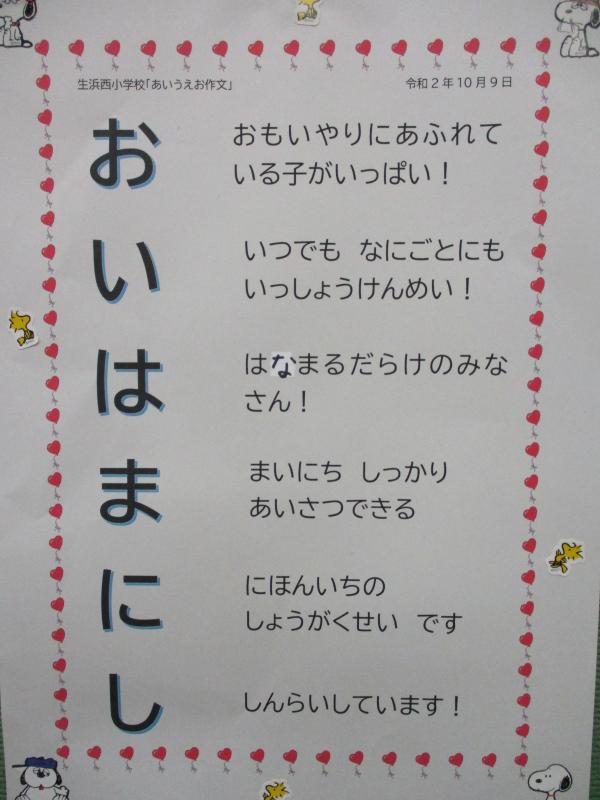 生浜西小学校「あいうえお作文」
令和2年10月9日
お
おもいやりにあふれて
いる子がいっぱい!
い
いつでも なにごとにも
いっしょうけんめい!
は
はなまるだらけのみな
さん!
ま
まいにち しっかり
あいさつできる
に
にほんいちの
しょうがくせい です
し
しんらいしています!